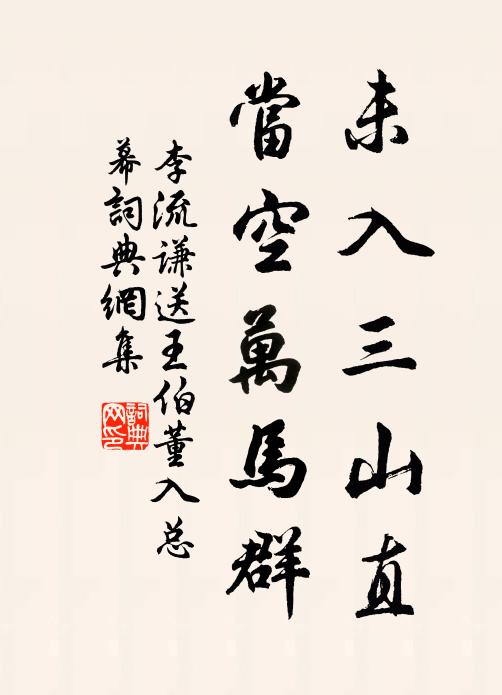 未入三山直
當空萬馬群
李流谦送王伯董入总
幕詞典網集
詞典
网印